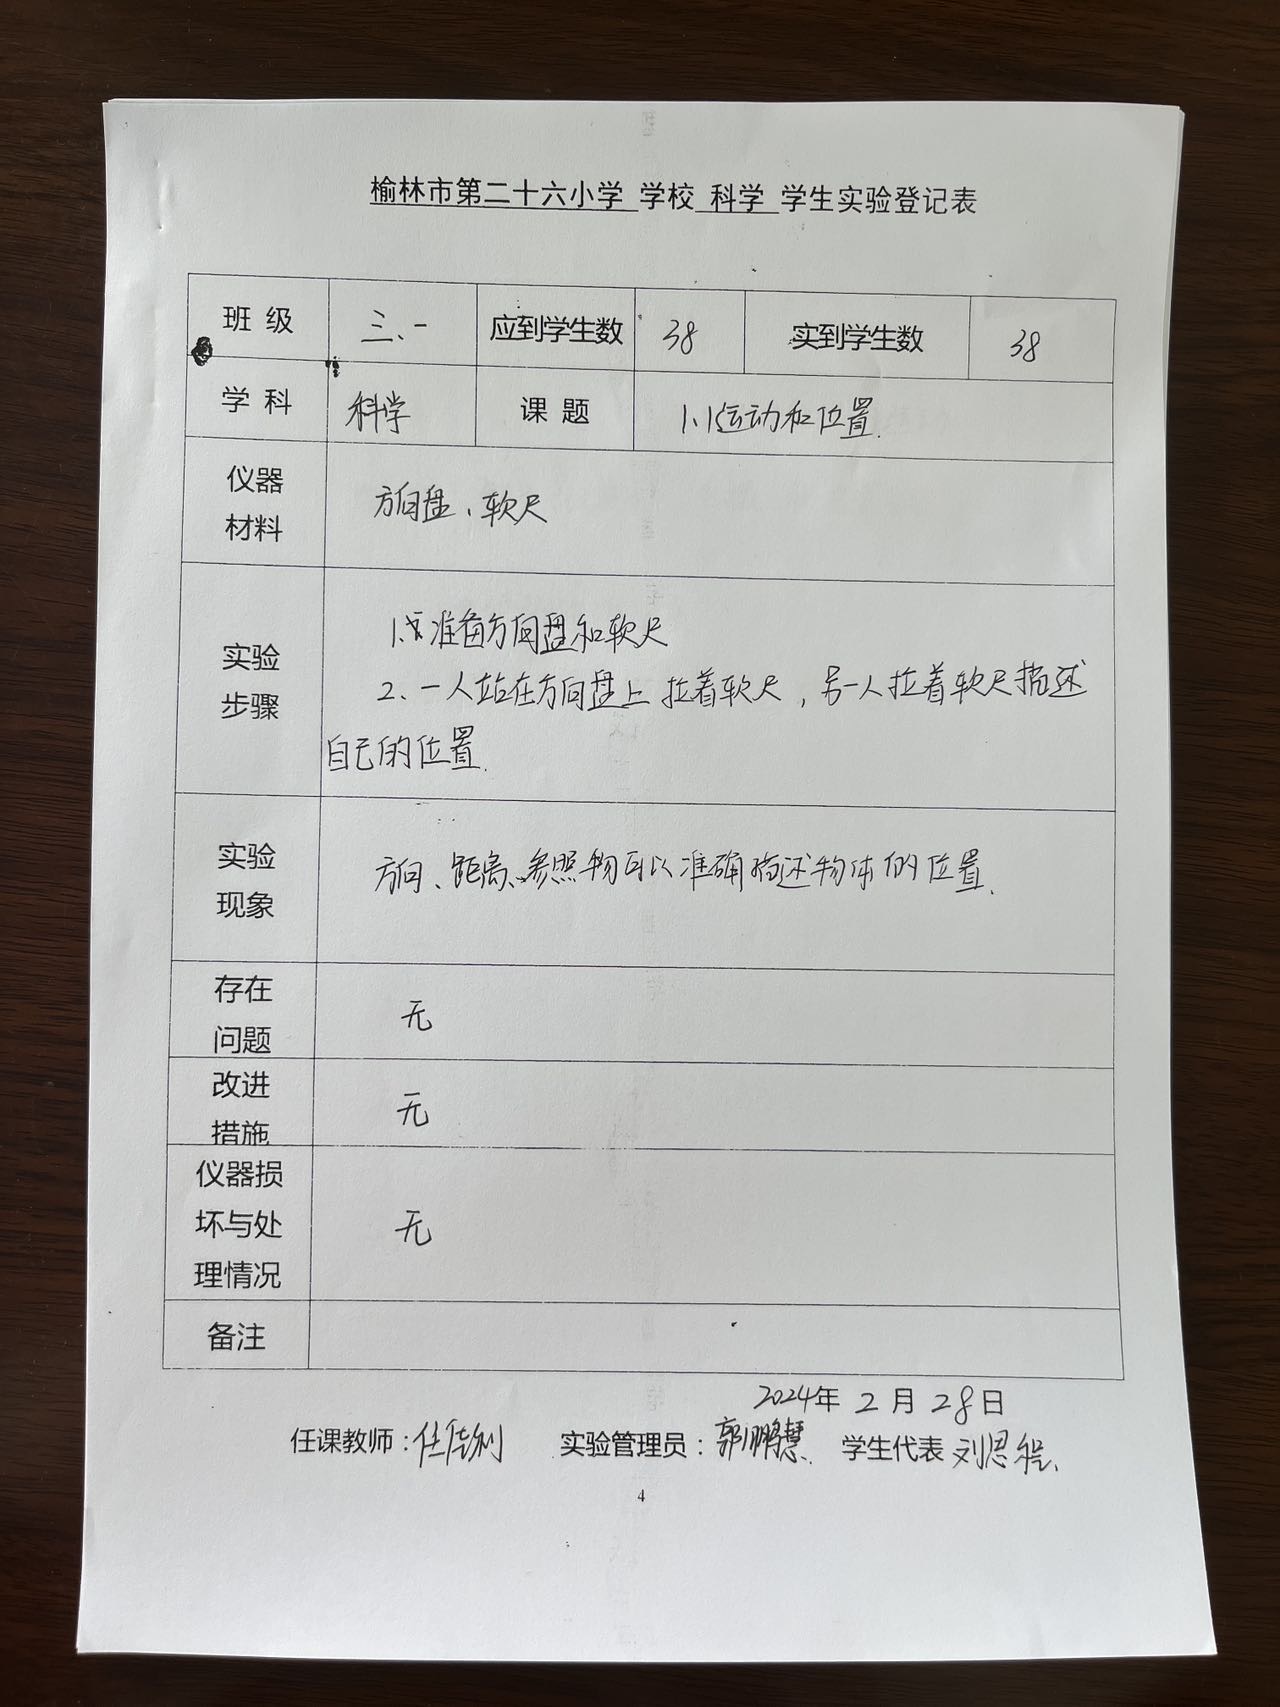 榆林市第二十六小学 学校 科学 学生实验登记表
班级 三、一 应到学生数 38 实到学生数 38
学科 科学 课题 1.1运动和位置.
仪器
材料
方向盘、软尺
实验
步骤
1.准备方向盘和软尺
2、一人站在方向盘上拉着软尺，另一人拉着软尺描述
自己的位置.
实验
现象
方向、距离、参照物可以准确描述物体的位置.
存在
问题
无
改进
措施
无
仪器损
坏与处
理情况
无
备注
2024年 2 月 28日
任课教师：任佳利 实验管理员：郭鹏慧. 学生代表 刘恩程.
4